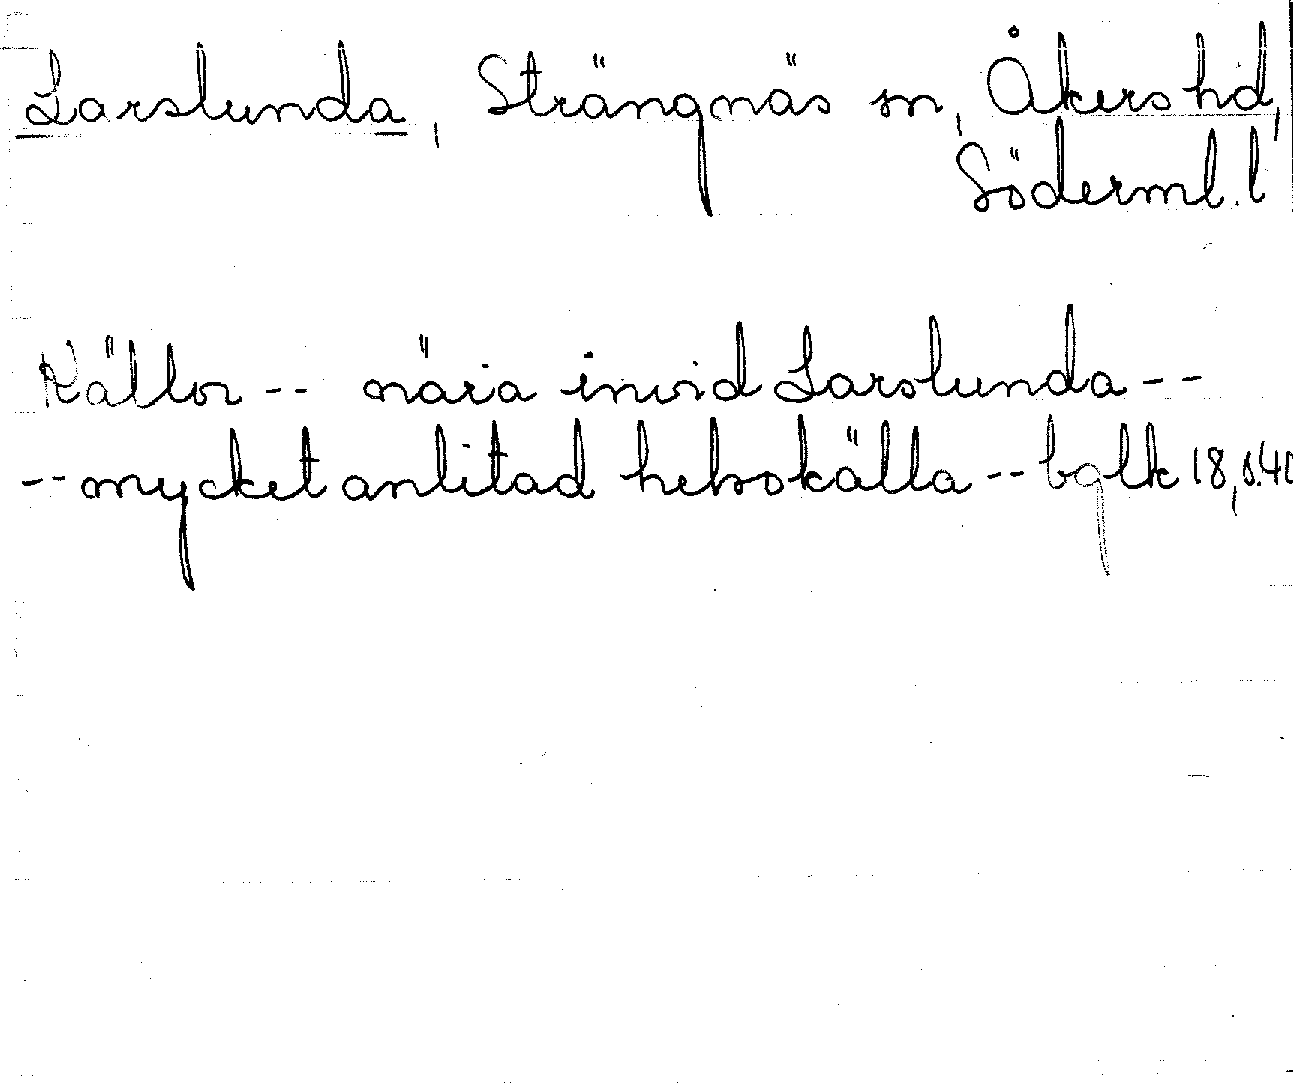 Larslunda, Strängnäs sn, Åkers hd,
Söderml. l
Källor -- nära invid Larslunda --
-- mycket anlitad helsokälla -- bglk 18, s. 41